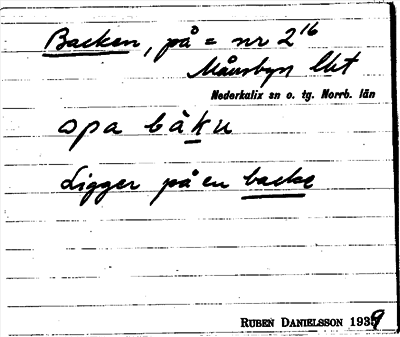 Backen, på = nr 2¹⁶
Månsbyn lht
Nederkalix sn o. tg. Norrb. län
opa bàku
Ligger på en backe
RUBEN DANIELSSON 1939